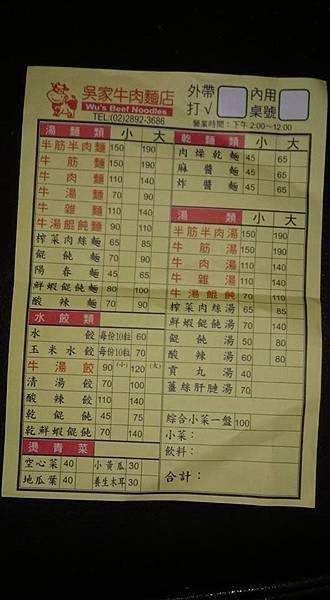 吳家牛肉麵店
Wu's Beef Noodles
TEL:(02)2892-3686
外帶 打√
內用 桌號
營業時間：下午2:00~12:00
湯麵類 小 大
半筋半肉麵 150 190
牛筋麵 150 190
牛肉麵 110 140
牛湯麵 70 90
牛雜麵 110 140
牛湯餛飩麵 90 110
榨菜肉絲麵 65 85
餛飩麵 70 90
陽春麵 45 65
鮮蝦餛飩麵 80 100
酸辣麵 70 90
水餃類
水餃 每份10粒 60
玉米水餃 每份10粒 70
牛湯餃 90 (小) 120 (大)
清湯餃 70
酸辣餃 110
乾餛飩 45 75
乾鮮蝦餛飩 70 140
燙青菜
空心菜 40 小黃瓜 30
地瓜葉 40 養生木耳 30
乾麵類 小 大
肉燥乾麵 45 65
麻醬麵 45 65
炸醬麵 45 65
湯類 小 大
半筋半肉湯 150 190
牛筋湯 150 190
牛肉湯 110 140
牛雜湯 110 140
牛湯餛飩 70 110
榨菜肉絲湯 65 85
鮮蝦餛飩湯 70
餛飩湯 50 80
酸辣湯 60 80
貢丸湯 40
薑絲肝腱湯 70
綜合小菜一盤 100
小菜：
飲料：
合計：